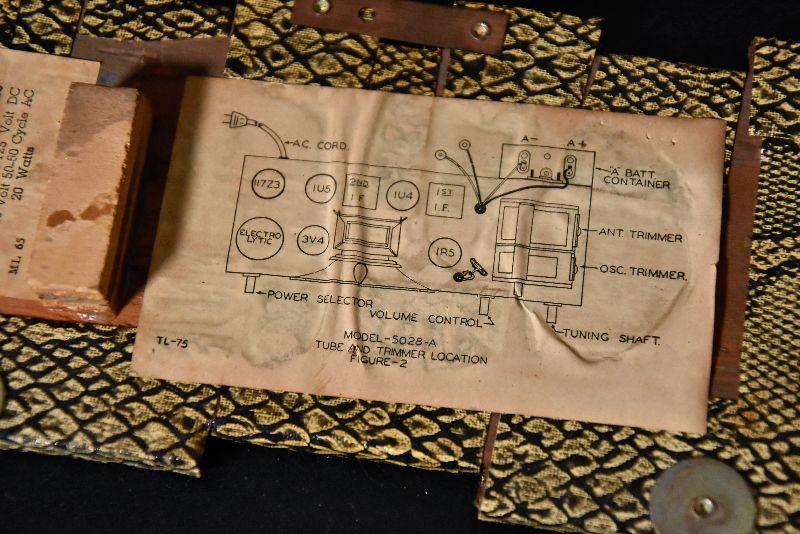 125 Volt DC
Volt 50-60 Cycle AC
20 Watts
ML 65
A.C. CORD.
A-
A+
"A" BATT.
CONTAINER
117Z3
1U5
2ND
I.F.
1U4
1ST
I.F.
ELECTRO
LYTIC
3V4
1R5
ANT. TRIMMER
OSC. TRIMMER.
POWER SELECTOR
VOLUME CONTROL
TUNING SHAFT.
TL-75
MODEL-5028-A
TUBE AND TRIMMER LOCATION
FIGURE-2